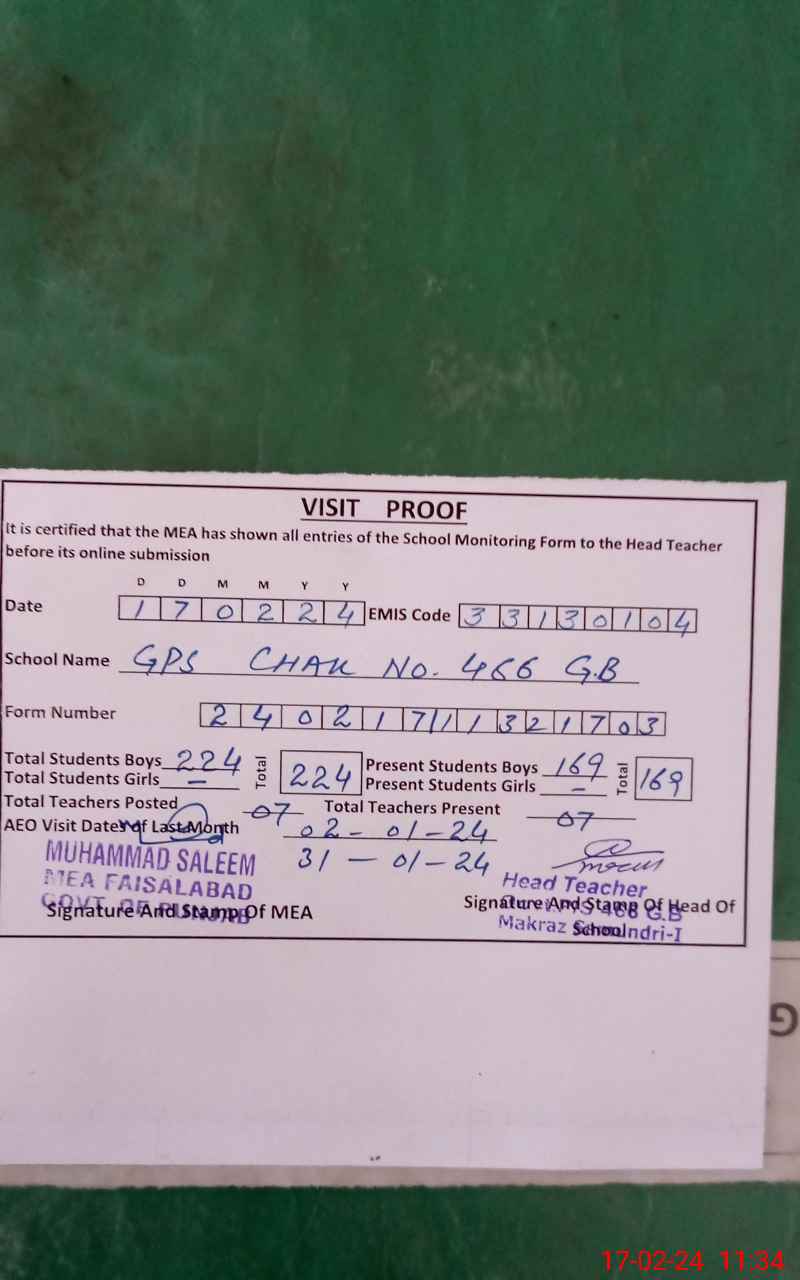 VISIT PROOF
It is certified that the MEA has shown all entries of the School Monitoring Form to the Head Teacher
before its online submission
D D M M Y Y
Date 1 7 0 2 2 4 EMIS Code 3 3 1 3 0 1 0 4
School Name GPS CHAK NO. 466 G.B
Form Number 2 4 0 2 1 7 1 1 3 2 1 7 0 3
Total Students Boys 224 Total 224 Present Students Boys 169 Total 169
Total Students Girls — Present Students Girls —
Total Teachers Posted 07 Total Teachers Present 07
AEO Visit Dates of Last Month 02 - 01 - 24
31 - 01 - 24
MUHAMMAD SALEEM
MEA FAISALABAD
GOVT. OF PUNJAB
Signature And Stamp Of MEA
Head Teacher
466 G.B
Signature And Stamp Of Head Of
School
Makraz
17-02-24 11:34
G